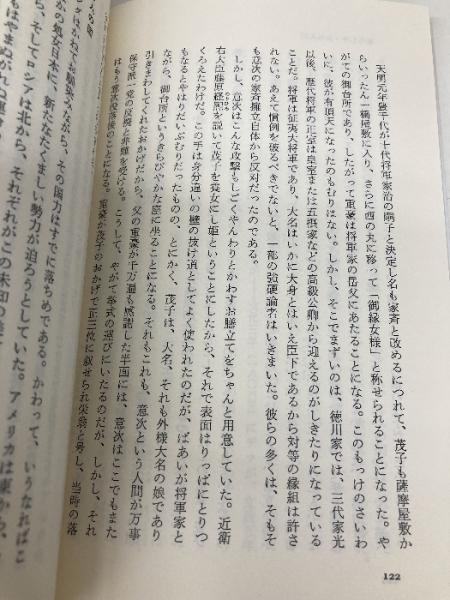 天明元年豊千代が十代将軍家治の嗣子と決定し名も家斉と改めるにつれて、茂子も薩摩屋敷か
らいったん一橋屋敷に入り、さらに西の丸に移って「御縁女様」と称せられることになった。や
がての御台所であり、したがって重豪は将軍家の岳父にあたることになる。このもっけのさいわ
いに、彼が有頂天になったのもむりはない。しかし、そこでまずいのは、徳川家では、三代家光
以後、歴代将軍の正室は皇室または五摂家などの高級公卿から迎えるのがしきたりになっている
ことだ。将軍は征夷大将軍であり、大名はいかに大身とはいえ臣下であるから対等の縁組は許さ
れない。あえて慣例を破るべきでないと、一部の強硬論者はいきまいた。彼らの多くは、そもそ
も意次の家斉擁立自体から反対だったのである。
しかし、意次はこんな攻撃もしごくやんわりとかわすお膳立てをちゃんと用意していた。近衛
右大臣藤原経熙を説いて茂子を養女にし姫ということにしたから、それで表面はりっぱにとりつ
くろえたわけだ。この手は身分違いの壁の抜け道としてよく使われたのだが、ばあいが将軍家と
もなるとやはりだいぶむりだったものの、とにかく、茂子は、大名、それも外様大名の娘であり
ながら、御台所というきらびやかな座に坐ることになる。それもこれも、意次という人間が万事
引きまわしてくれたおかげだから、父の重豪が千万遍も感謝した半面には、意次はここでもまた
保守派一名の反感と非難を受ける。こうして、やがて挙式の運びにいたるのだが、しかし、それ
はもう意次没落後のことになる。重豪が茂子のおかげで正三位に叙せられ栄翁と号し、当時の落
122
ンダはかねてお馴染みながら、その国力はすでに落ちめである。かわって、いうなればこ
の処女日本に、新たなたくましい勢力が迫ろうとしていた。アメリカは東から、
ら、そしてロシアは北から、それぞれがこの未知の